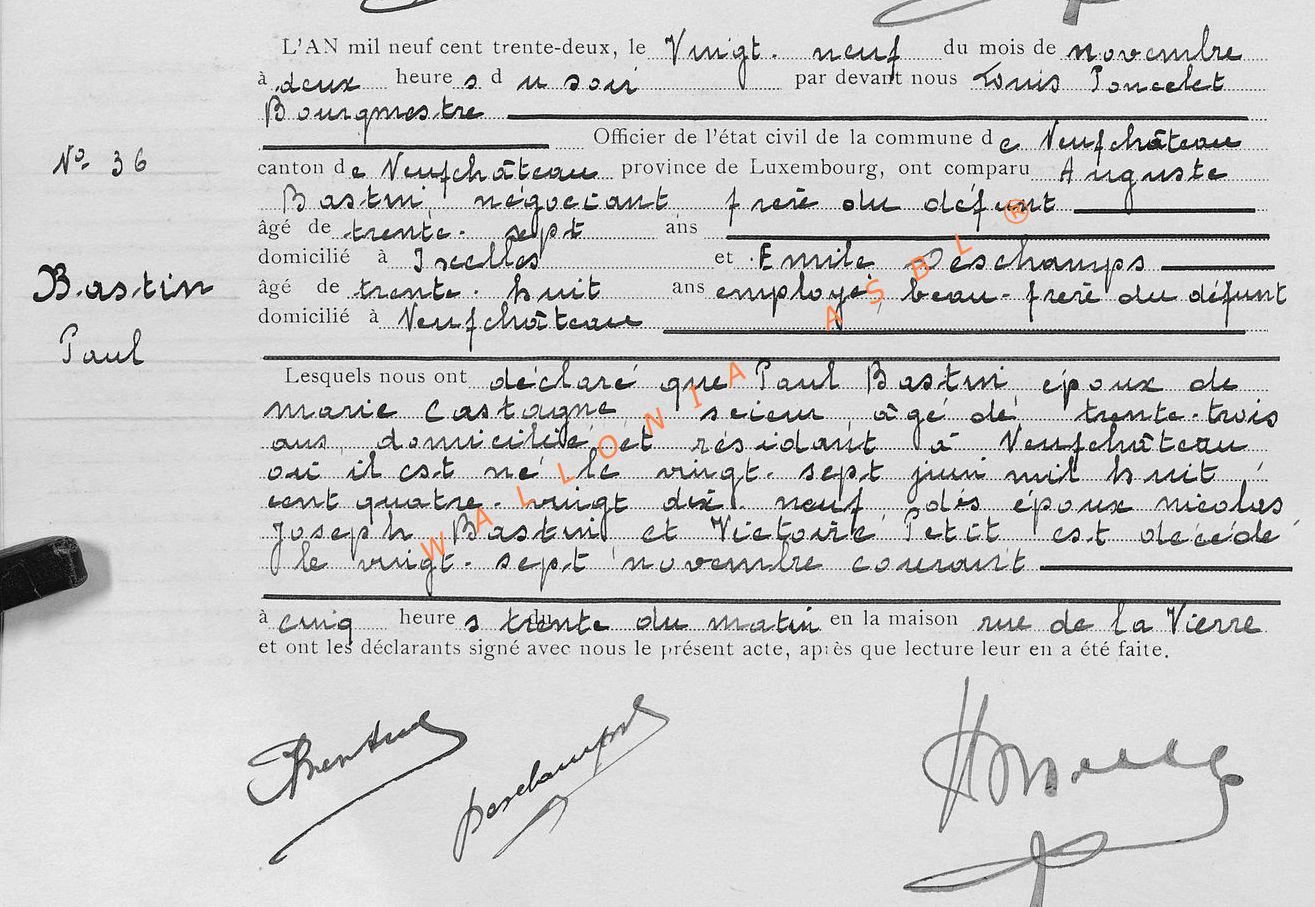 L'AN mil neuf cent trente-deux, le Vingt-neuf du mois de novembre
à deux heures du soir par devant nous Louis Poncelet
Bourgmestre
Officier de l'état civil de la commune de Neufchâteau
N° 36
canton de Neufchâteau province de Luxembourg, ont comparu Auguste
Bastin négociant frère du défunt
âgé de trente-sept ans
domicilié à Ixelles et Emile Deschamps
Bastin
âgé de trente-huit ans employé, beau-frère du défunt
domicilié à Neufchâteau
Paul
Lesquels nous ont déclaré que Paul Bastin époux de
marie Castagne scieur âgé de trente-trois
ans domicilié et résidant à Neufchâteau
où il est né le vingt-sept juin mil huit
cent quatre-vingt dix-neuf dés époux nicolas
Joseph Bastin et Victoire Petit est décédé
le vingt-sept novembre courant
à cinq heures trente du matin en la maison rue de la Vierre
et ont les déclarants signé avec nous le présent acte, après que lecture leur en a été faite.
Deschamps
WALLONIA ASBL ®